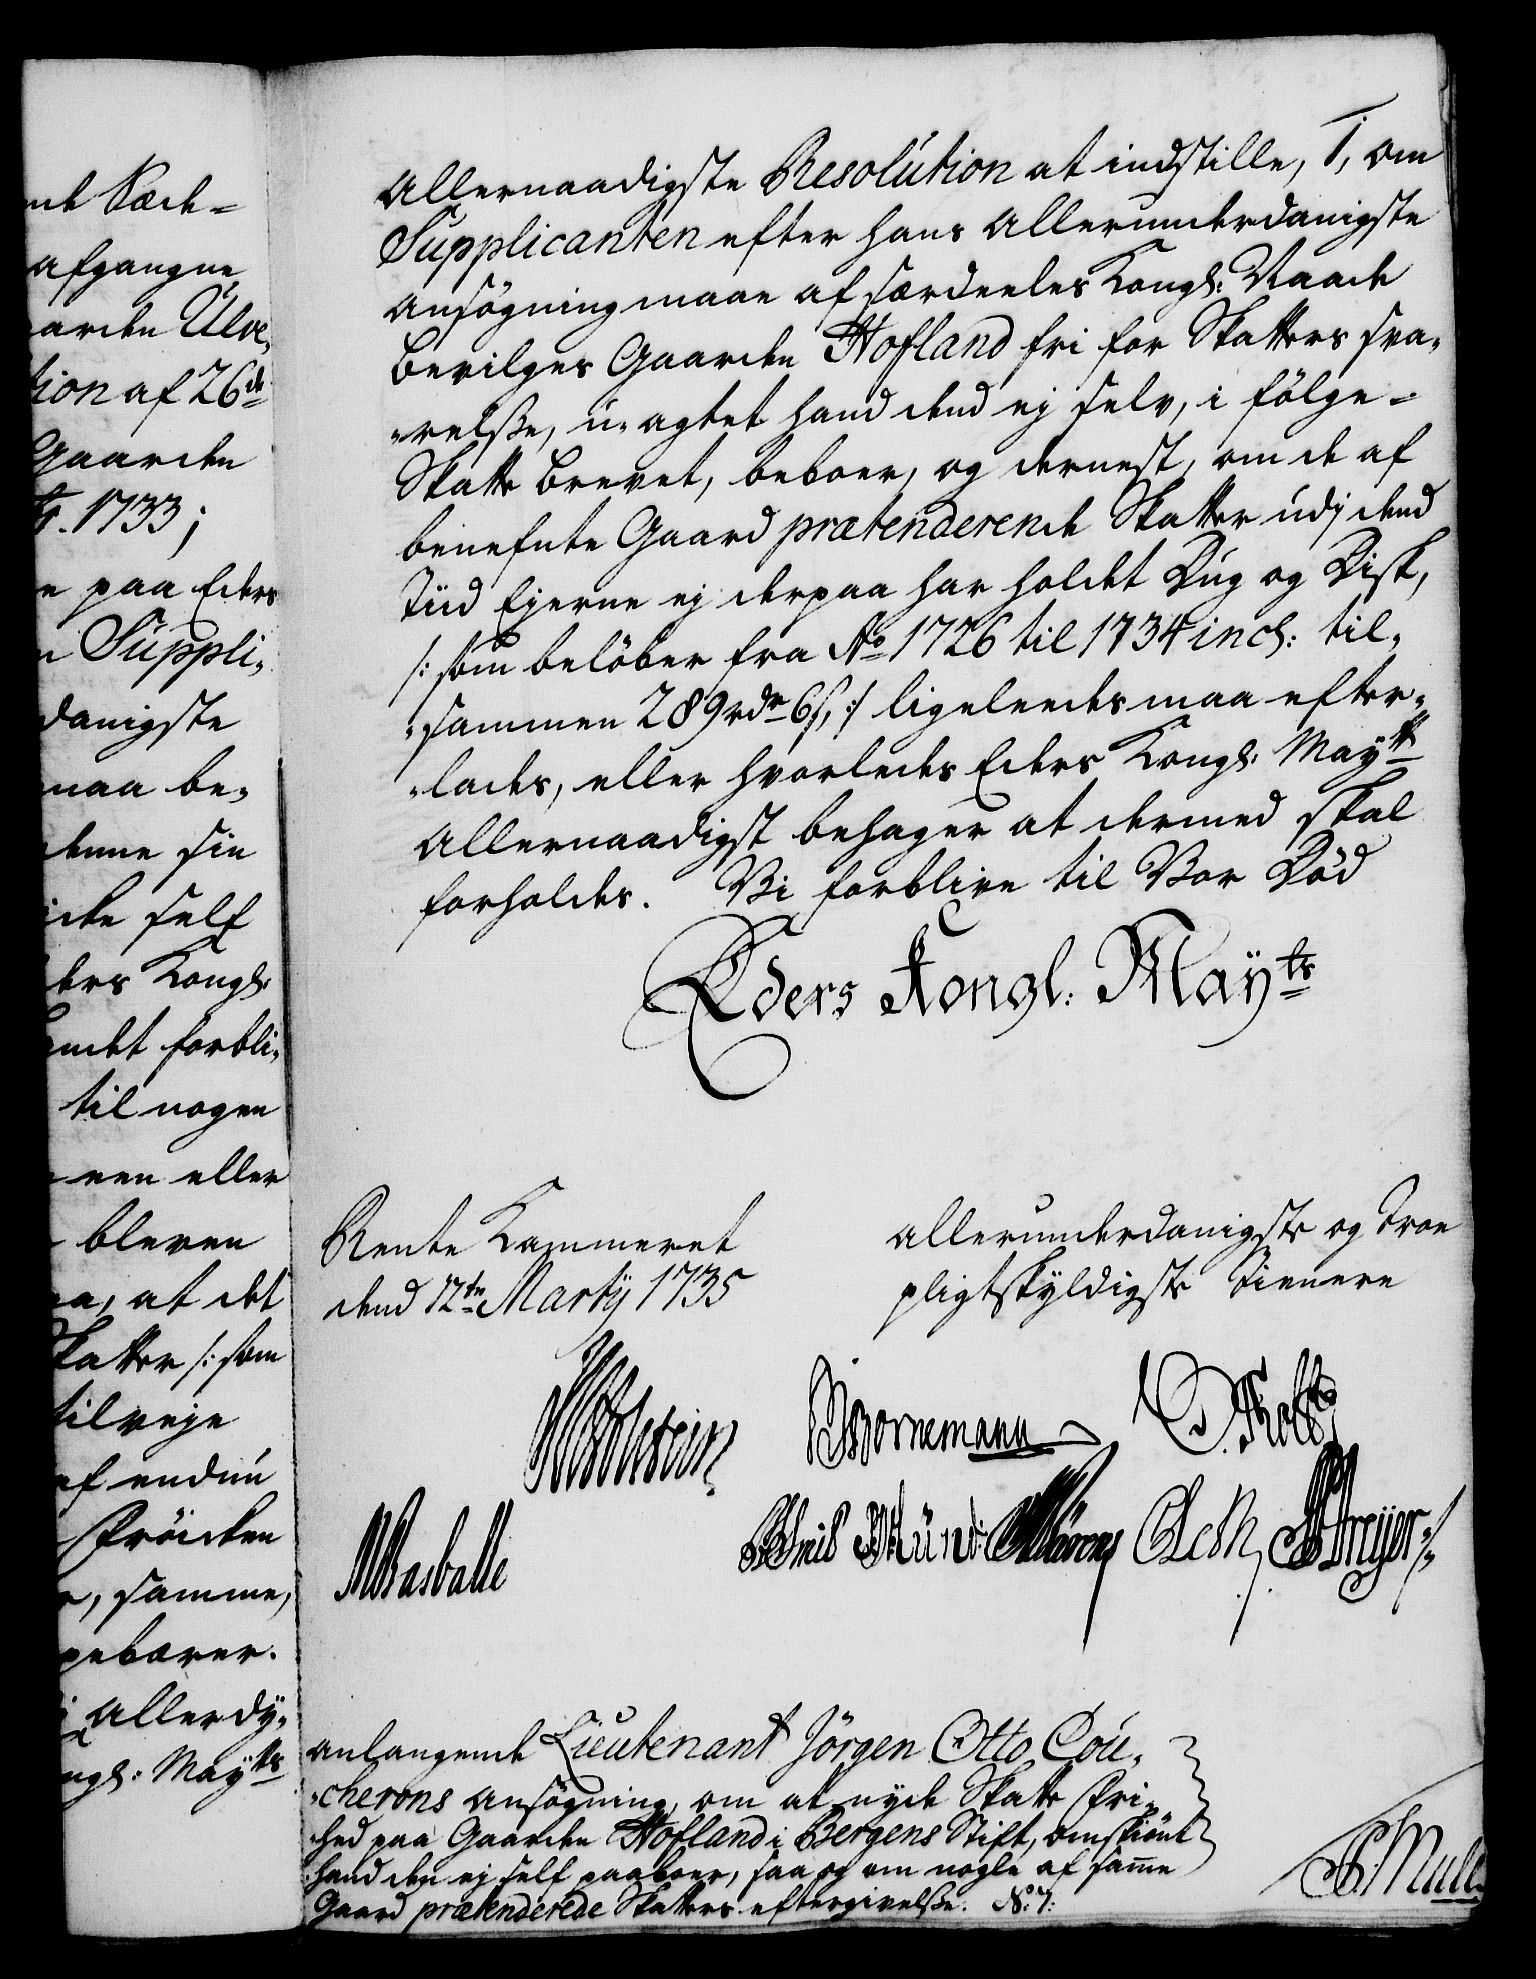 nde Sæde=
afgangne
aarden Ulve,
tion af 26de
Gaarden
1733;
paa Eders
Suppli,
danigste
maa be,
denne sin
icke self
ders Kongl:
forbli,
til nogen
een eller
bleven
at det
Skatter /: som
tilveje
endnu
Frøicken
samme,
gebærer.
Allerdy,
ngl: Maytts
allernaadigste Resolution at indstille, 1, om
Supplicanten efter hans allerunderdanigste
ansøgning maae af særdeeles Kongl: Naade
bevilges Gaarden Hofland fri for Skatters sva,
,relsse, u,agtet hand dend ej selv, i følge=
Skatte brevet, beboer, og dernest, om de af
benefnte Gaard prætenderende Skatter udj dend
Tiid Ejerne ej derpaa har holdet Dug og Disk,
/: som beløber fra Ao 1726 til 1734 incl: til,
,sammen 289 rdr 6 s, :/ ligeleedes maa efter,
,lades, eller hvorledes Eders Kongl: Maytt
allernaadigst behager at dermed skal
forholdes. Vi forblive til Vor Død
Eders Kongl: Mayts
Rente Kammeret
dend 12te Martij 1735
allerunderdanigste og Troe
pligtskyldigste Tienere
Bornemann
MBasballe
anlangende Lieutenant Jörgen Otto Cou,
,cherons ansøgning, om at nyde Skatte Fri,
,hed paa Gaarden Hofland i Bergens Stift, omskiønt
hand den ej self paaboer, saa og om nogle af samme
Gaard prætenderede Skatters eftergivelsse. No: 7: